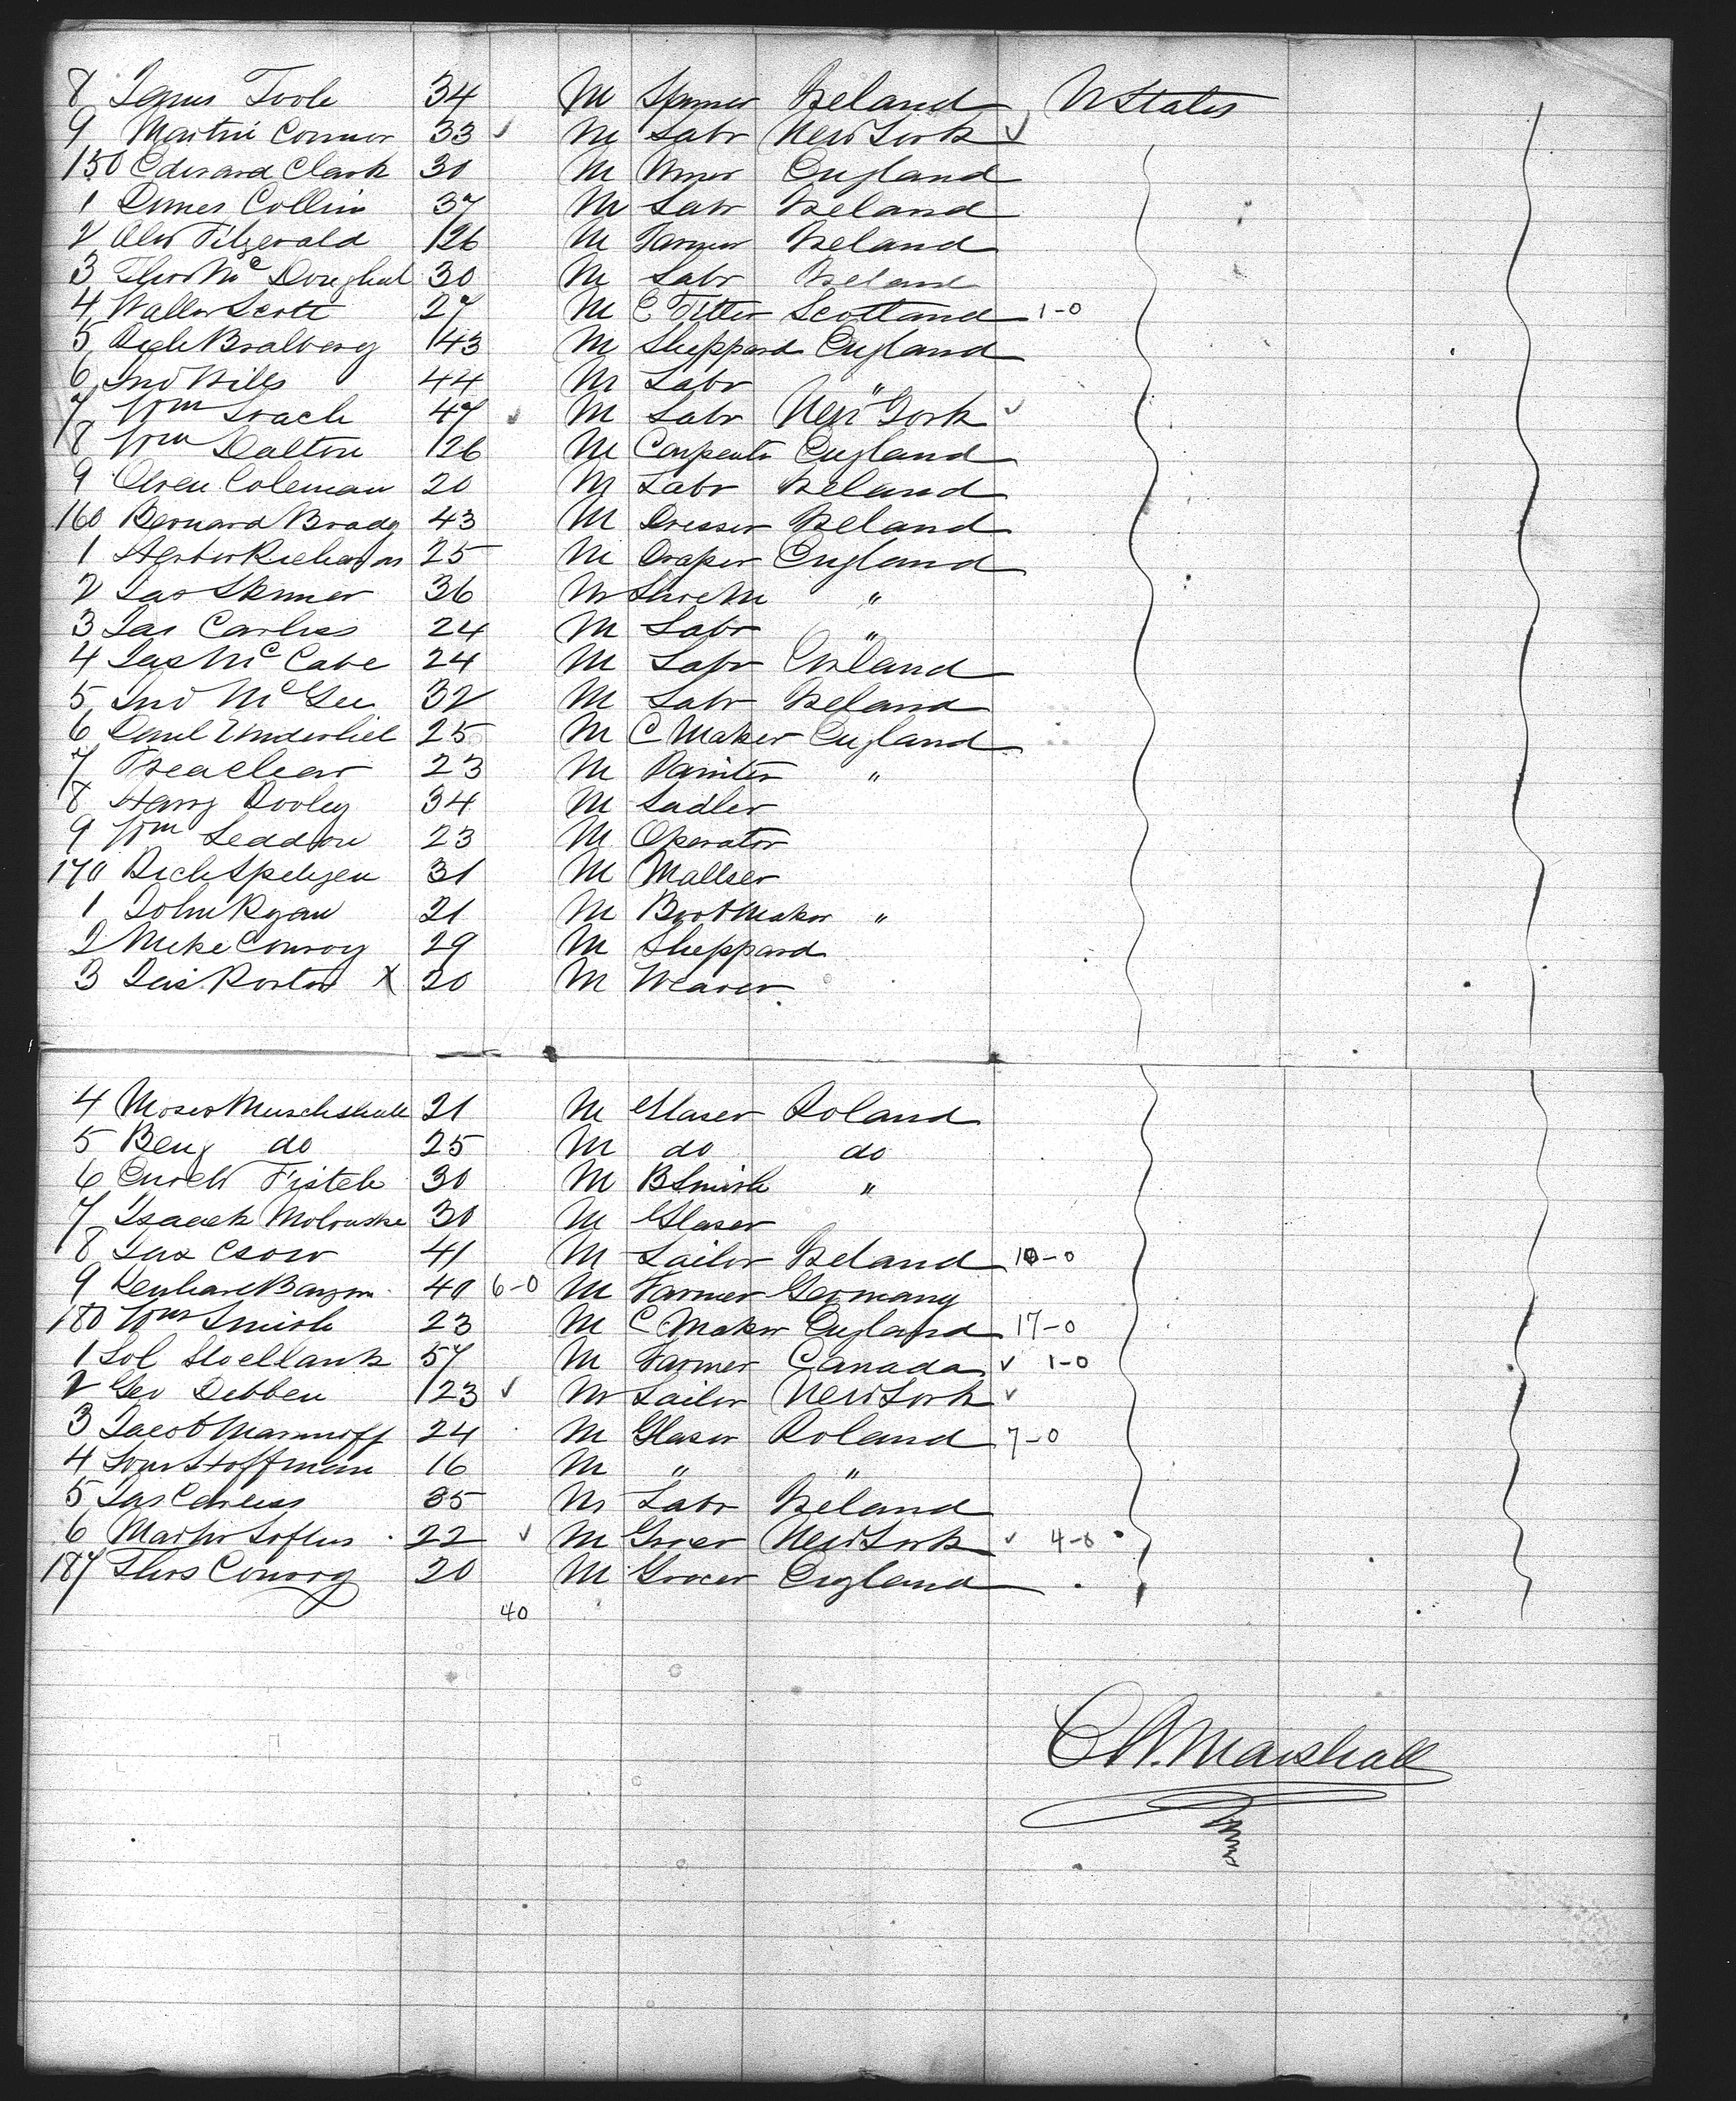 8 Toole 34 M Spinner Ireland U States
9 Martin Connor 33 ✓ M Labr New York ✓
150 Edward Clark 30 M England
1 James Collin 37 M Labr Ireland
2 Fitzgerald 26 M Farmer Ireland
3 Thos Mc 30 M Labr Ireland
4 Walter Scott 27 M E Fitter Scotland 1-0
5 43 M Sheppard England
6 Jno Wills 44 M Labr "
7 Wm 47 ✓ M Labr New York ✓
8 Wm Dalton 26 M Carpentr England
9 Owen Coleman 20 M Labr Ireland
160 Bernard Brady 43 M Dresser Ireland
1 25 M Draper England
2 Jas Skinner 36 M Shoe M "
3 Jas Carless 24 M Labr "
4 Jas Mc Cabe 24 M Labr
5 Jno McGee 32 M Labr Ireland
6 25 M C Maker England
7 23 M Painter "
8 Harry Dooley 34 M Sadler
9 Wm Seddon 23 M Operator
170 Rich 31 M
1 John Ryan 21 M Boot Maker "
2 Mike Conroy 29 M Sheppard
3 X 20 M Weaver
4 Moses 21 M Glaser Poland
5 Benj do 25 M do do
6 30 M B Smith "
7 Isaack 30 M Glaser
8 Jas 41 M Tailor Ireland 10-0
9 40 6-0 M Farmer Germany
180 Wm Smith 23 M C Maker England 17-0
1 Sol 57 M Farmer Canada ✓ 1-0
2 Geo Debben 23 ✓ M Tailor New York ✓
3 Jacob 24 M Glaser Poland 7-0
4 Hoffman 16 M " "
5 Jas 35 M Labr Ireland
6 Loftus 22 ✓ M New York ✓ 4-0
187 Thos Conroy 20 M Grocer England
40
C W. Marshall